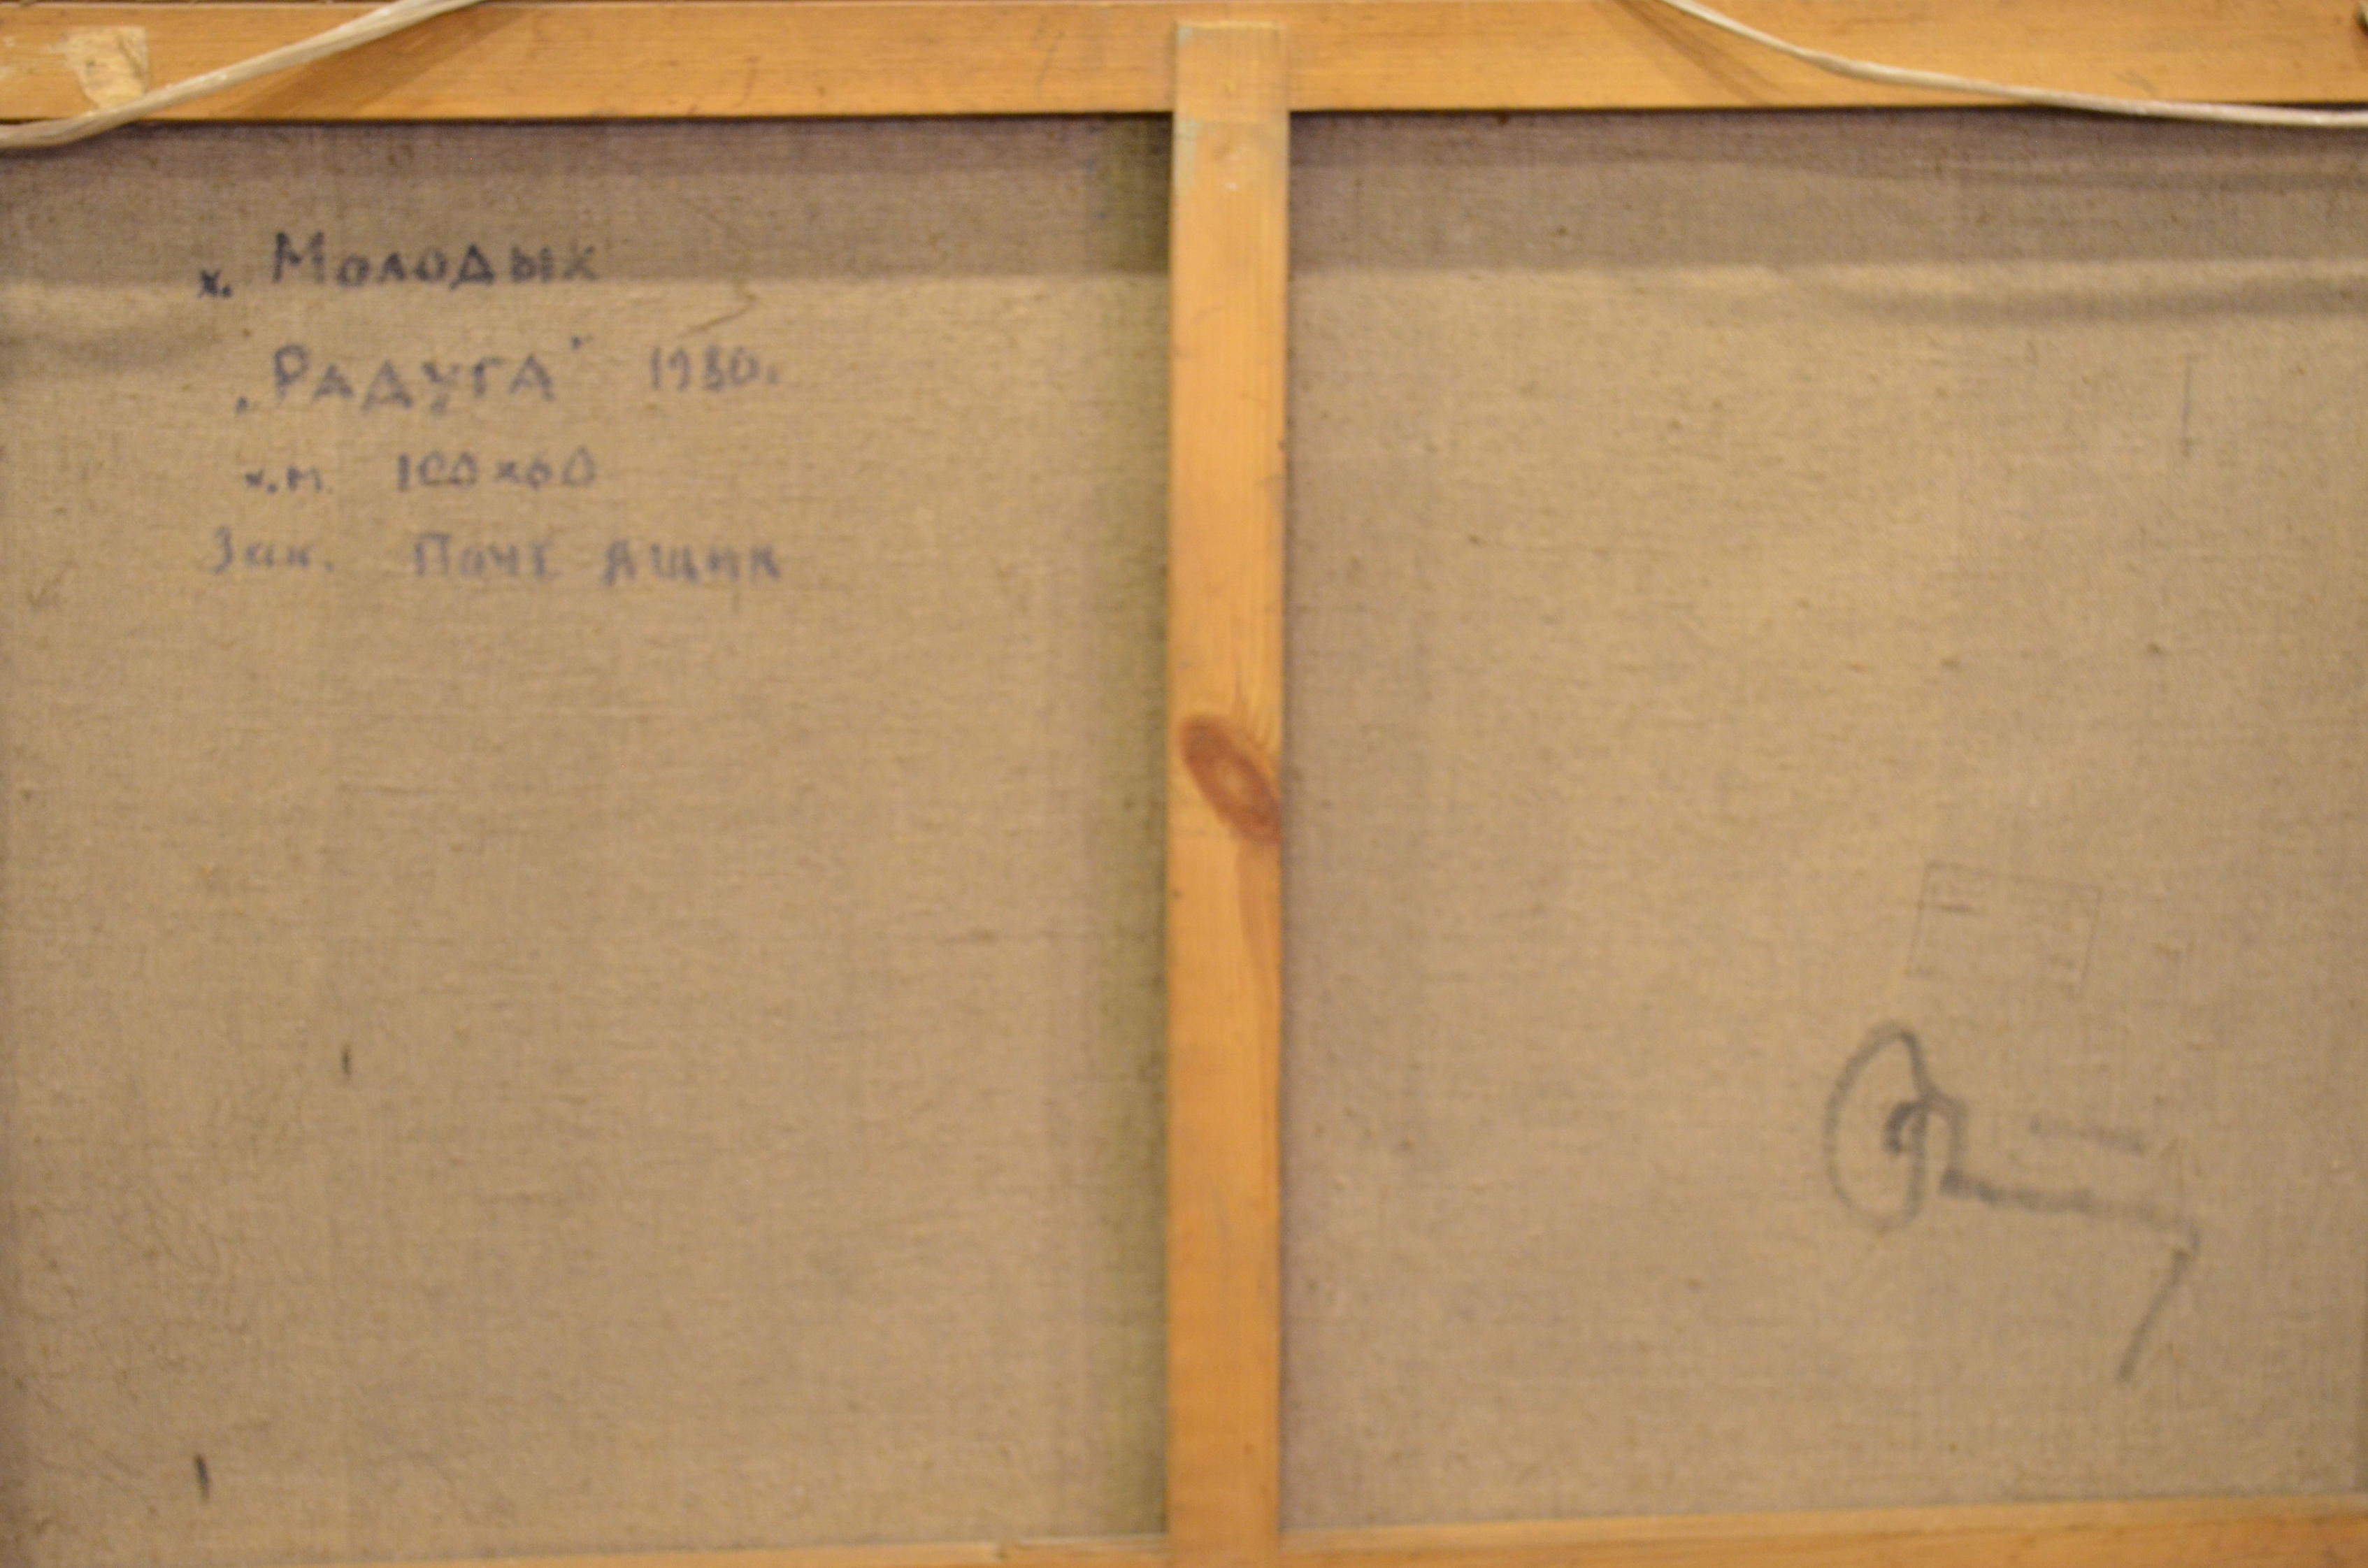 х. Молодых
„Радуга" 1980.
х.м. 100х60
Зак. Почт ящик